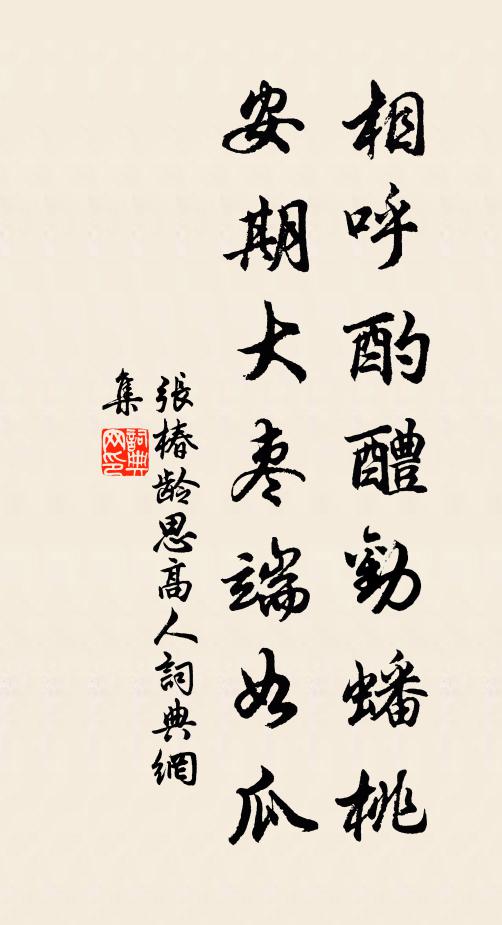 相呼酌醴勸蟠桃
安期大棗端如瓜
張椿齡思高人詞典網
集
詞典网印